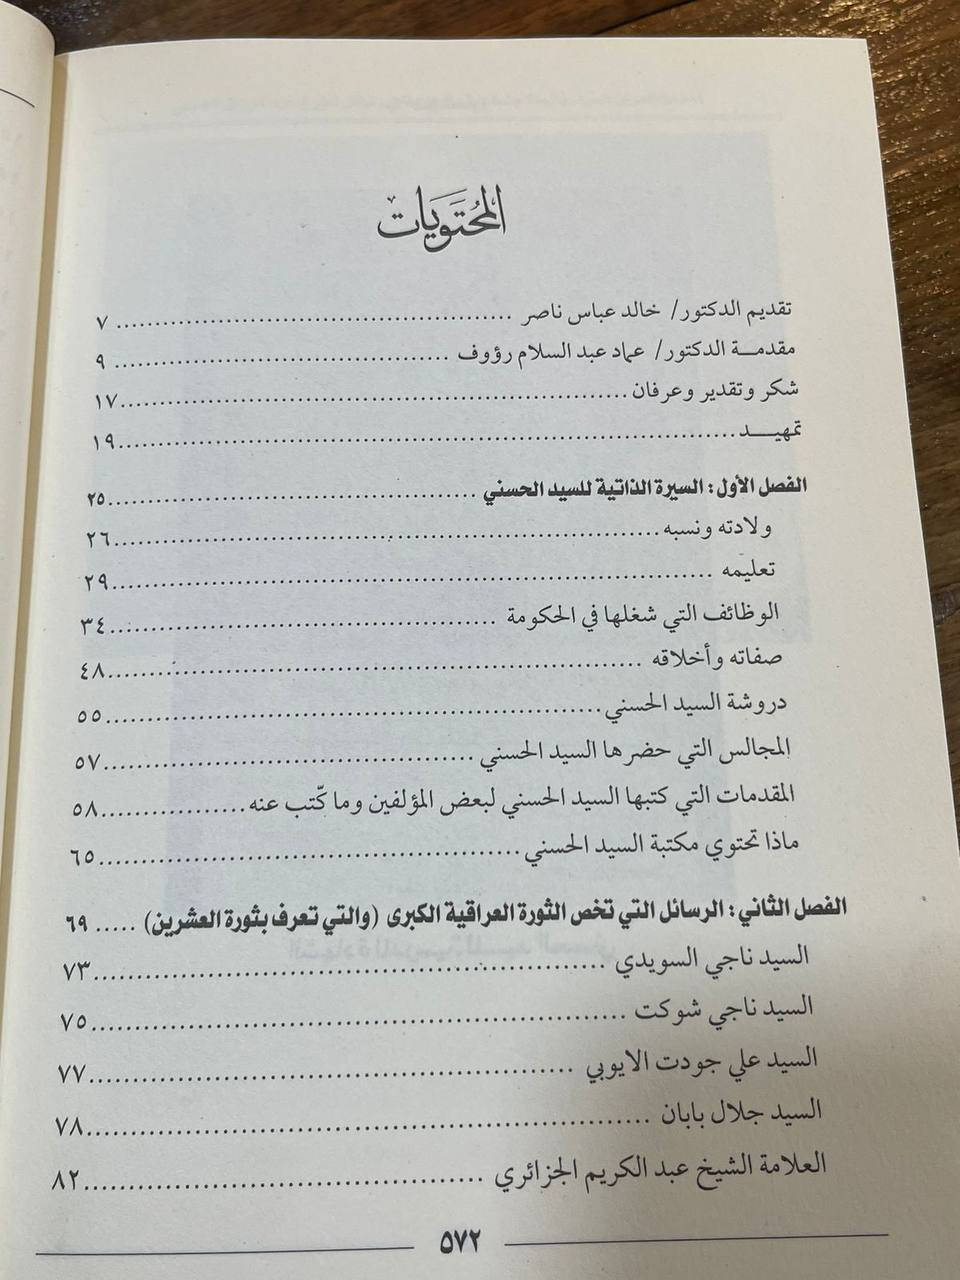 المحتويات
تقديم الدكتور/ خالد عباس ناصر ........ ٧
مقدمــة الدكتور/ عماد عبد السلام رؤوف ........ ٩
شكر وتقدير وعرفان ........ ١٧
تمهيــــد ........ ١٩
الفصل الأول: السيرة الذاتية للسيد الحسني ........ ٢٥
ولادته ونسبه ........ ٢٦
تعليمه ........ ٢٩
الوظائف التي شغلها في الحكومة ........ ٣٤
صفاته وأخلاقه ........ ٤٨
دروشة السيد الحسني ........ ٥٥
المجالس التي حضرها السيد الحسني ........ ٥٧
المقدمات التي كتبها السيد الحسني لبعض المؤلفين وما كّتب عنه ........ ٥٨
ماذا تحتوي مكتبة السيد الحسني ........ ٦٥
الفصل الثاني: الرسائل التي تخص الثورة العراقية الكبرى (والتي تعرف بثورة العشرين) ..... ٦٩
السيد ناجي السويدي ........ ٧٣
السيد ناجي شوكت ........ ٧٥
السيد علي جودت الايوبي ........ ٧٧
السيد جلال بابان ........ ٧٨
العلامة الشيخ عبد الكريم الجزائري ........ ٨٢
٥٧٢